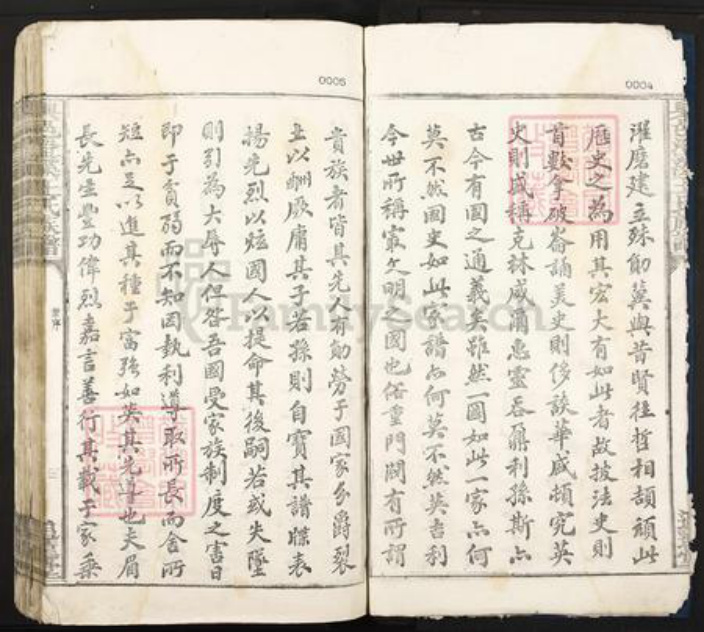 0004
濯磨建立殊勛冀與昔賢往哲相頡頏此
歷史之為用其宏大有如此者故披法史則
首數拿破崙誦美史則侈談華盛頓究英
史則咸稱克林威爾惠靈吞鼐利孫斯亦
古今有國之通義矣雖然一國如此一家亦何
莫不然國史如此家譜亦何莫不然英吉利
今世所稱最文明之國也俗重門閥有所謂
0005
貴族者皆其先人有勛勞于國家分爵裂
土以酬厥庸其子若孫則自寶其譜牒表
揚先烈以炫國人以提命其後嗣若或失墜
則引為大辱人但咎吾國受家族制度之害日
即于貧弱而不知因埶利導取所長而舍所
短亦足以進其種于富強如英其先導也夫眉
長先生豐功偉烈嘉言善行具載于家乘
氏族譜
FamilySearch